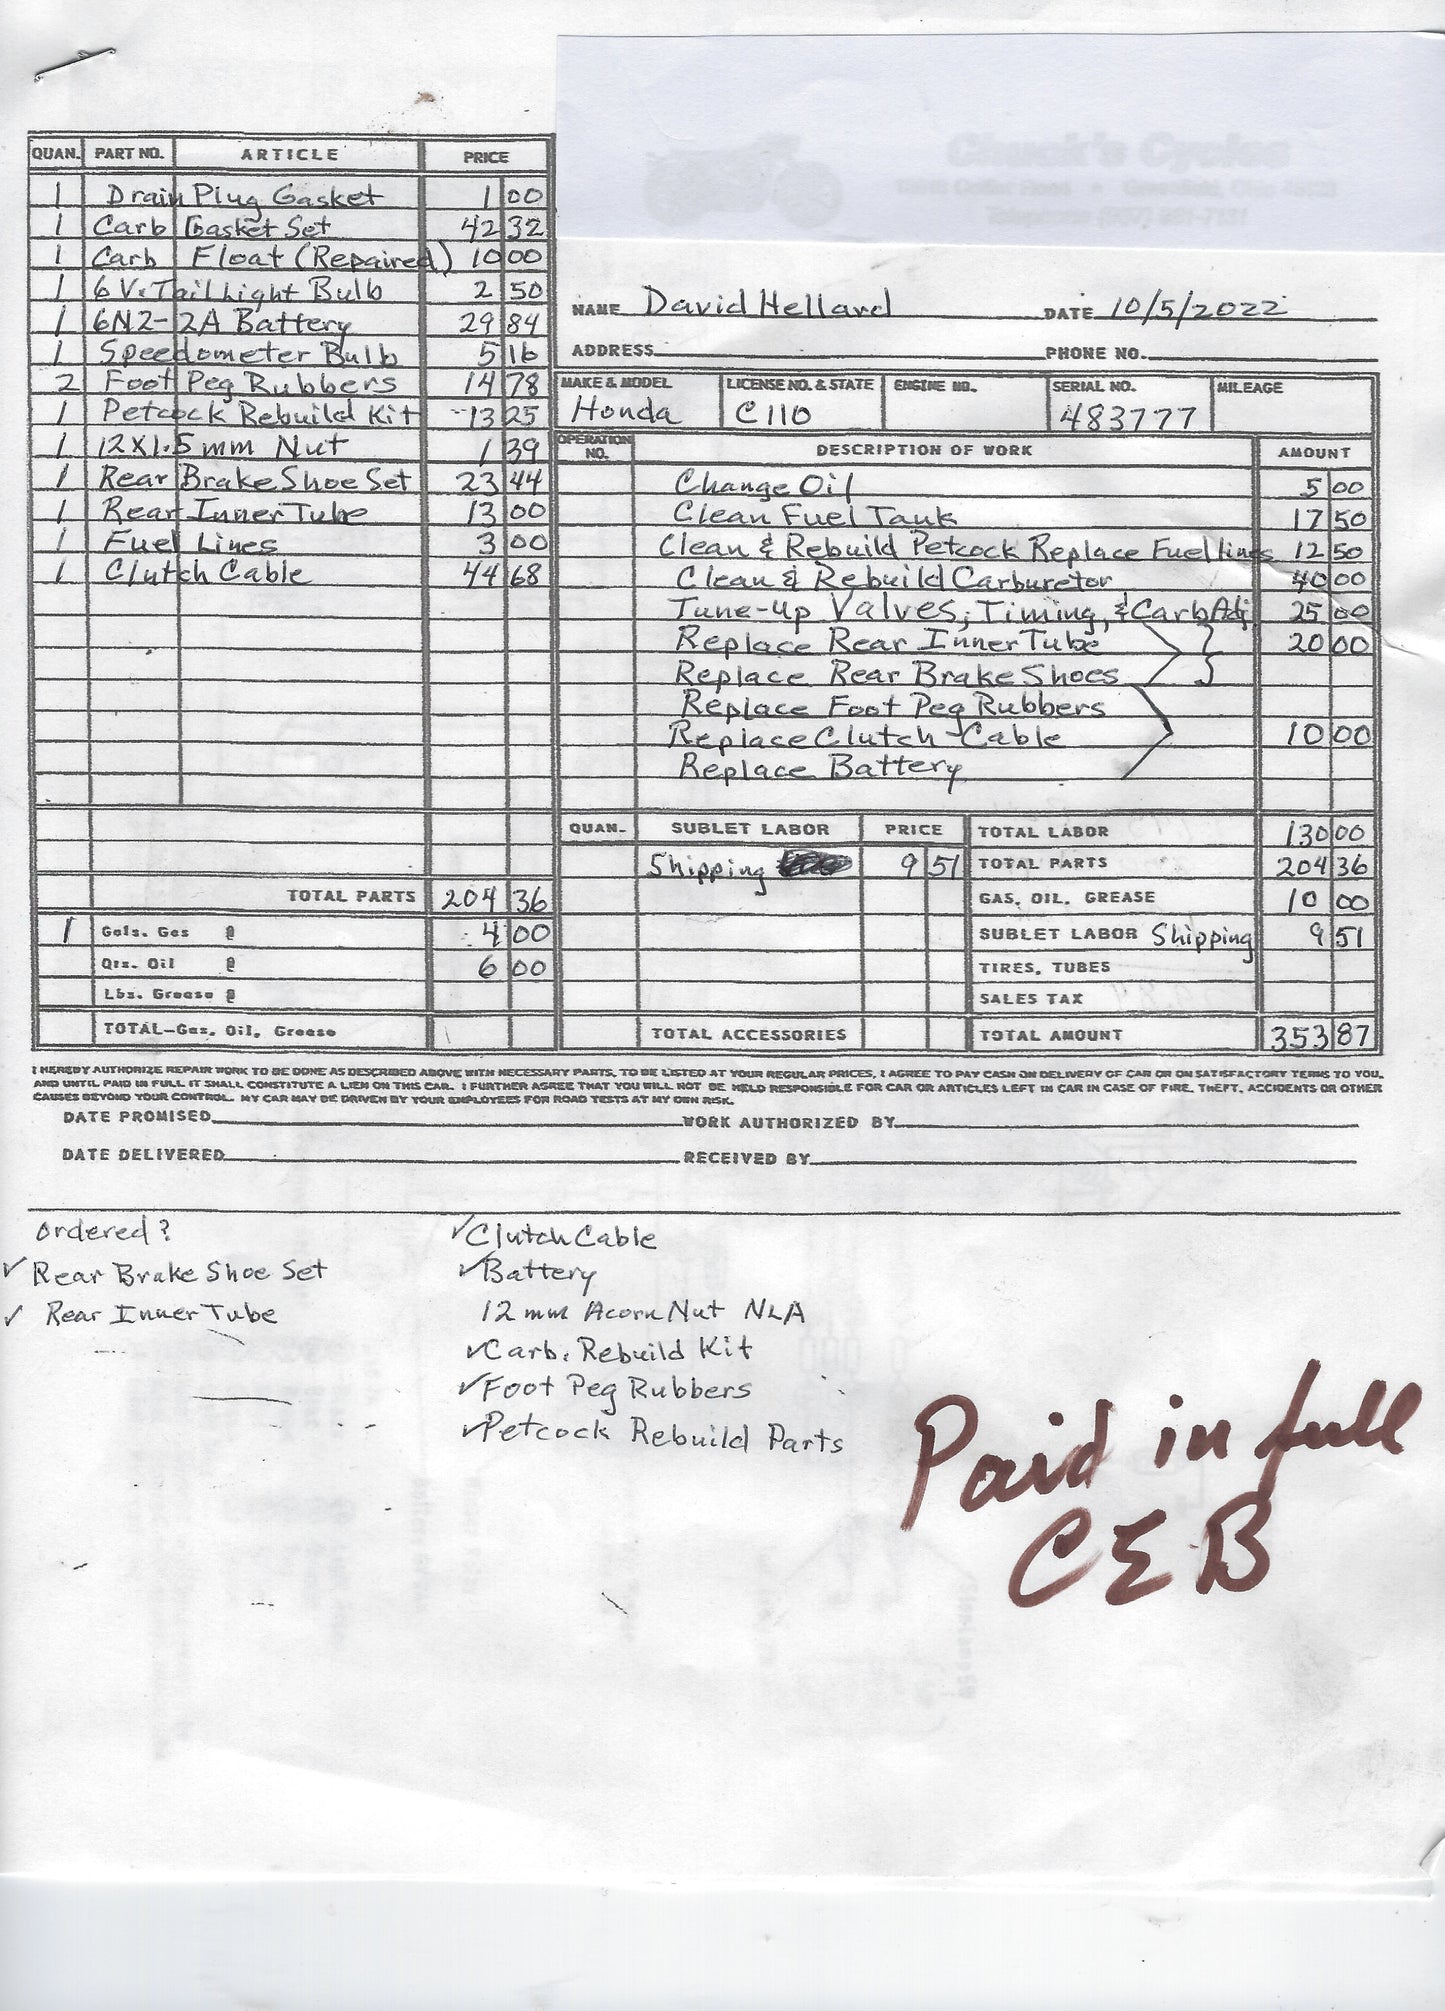 QUAN. PART NO. ARTICLE PRICE
1 Drain Plug Gasket 1 00
1 Carb Gasket Set 42 32
1 Carb Float (Repaired) 10 00
1 6 V. Tail Light Bulb 2 50
1 6N2-2A Battery 29 84
1 Speedometer Bulb 5 16
2 Foot Peg Rubbers 14 78
1 Petcock Rebuild Kit 13 25
1 12X1.5 mm Nut 1 39
1 Rear Brake Shoe Set 23 44
1 Rear Inner Tube 13 00
1 Fuel Lines 3 00
1 Clutch Cable 44 68
TOTAL PARTS 204 36
1 Gals. Gas @ 4 00
Qts. Oil @ 6 00
Lbs. Grease @
TOTAL-Gas, Oil, Grease
Chuck's Cycles
NAME David Hellard DATE 10/5/2022
ADDRESS PHONE NO.
MAKE & MODEL LICENSE NO. & STATE ENGINE NO. SERIAL NO. MILEAGE
Honda C110 483777
OPERATION NO. DESCRIPTION OF WORK AMOUNT
Change Oil 5 00
Clean Fuel Tank 17 50
Clean & Rebuild Petcock Replace Fuel lines 12 50
Clean & Rebuild Carburetor 40 00
Tune-up Valves, Timing, & Carb Adj 25 00
Replace Rear Inner Tube 20 00
Replace Rear Brake Shoes
Replace Foot Peg Rubbers
Replace Clutch Cable 10 00
Replace Battery
QUAN. SUBLET LABOR PRICE
Shipping 9 51
TOTAL ACCESSORIES
TOTAL LABOR 130 00
TOTAL PARTS 204 36
GAS, OIL, GREASE 10 00
SUBLET LABOR Shipping 9 51
TIRES, TUBES
SALES TAX
TOTAL AMOUNT 353 87
I HEREBY AUTHORIZE REPAIR WORK TO BE DONE AS DESCRIBED ABOVE WITH NECESSARY PARTS, TO BE LISTED AT YOUR REGULAR PRICES, I AGREE TO PAY CASH ON DELIVERY OF CAR OR ON SATISFACTORY TERMS TO YOU,
AND UNTIL PAID IN FULL IT SHALL CONSTITUTE A LIEN ON THIS CAR. I FURTHER AGREE THAT YOU WILL NOT BE HELD RESPONSIBLE FOR CAR OR ARTICLES LEFT IN CAR IN CASE OF FIRE, THEFT, ACCIDENTS OR OTHER
CAUSES BEYOND YOUR CONTROL. MY CAR MAY BE DRIVEN BY YOUR EMPLOYEES FOR ROAD TESTS AT MY OWN RISK.
DATE PROMISED WORK AUTHORIZED BY
DATE DELIVERED RECEIVED BY
ordered?
✓ Rear Brake Shoe Set
✓ Rear Inner Tube
✓ Clutch Cable
✓ Battery
12 mm Acorn Nut NLA
✓ Carb. Rebuild Kit
✓ Foot Peg Rubbers
✓ Petcock Rebuild Parts
Paid in full
CEB